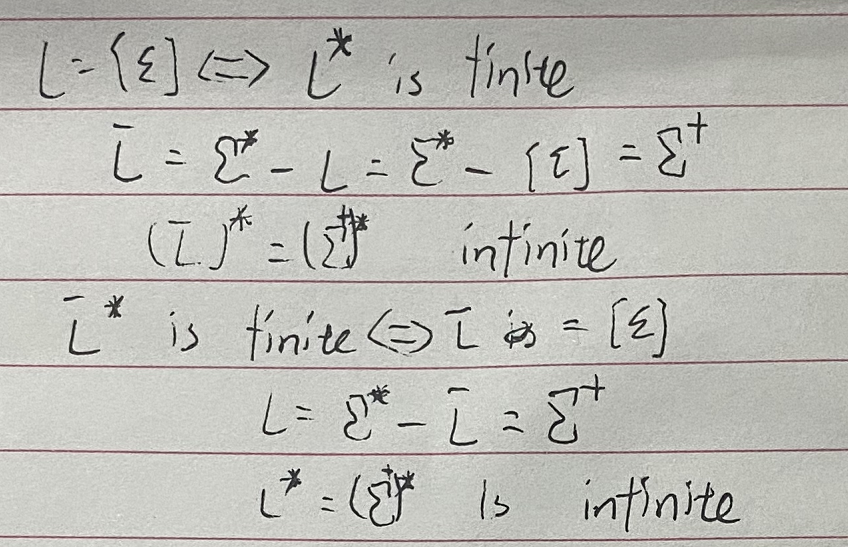 L = {ε} <=> L* is finite
L̄ = Σ* - L = Σ* - {ε} = Σ⁺
(L̄)* = (Σ⁺)* infinite
L̄* is finite <=> L̄ = {ε}
L = Σ* - L̄ = Σ⁺
L* = (Σ⁺)* is infinite